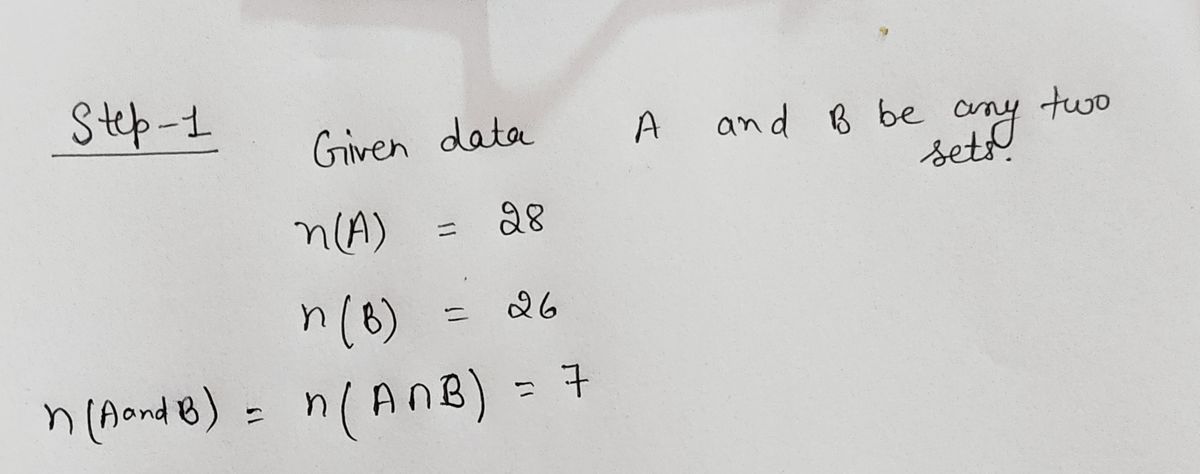 Step-1
Given data A and B be any two
sets.
n(A) = 28
n(B) = 26
n(A and B) = n(A∩B) = 7